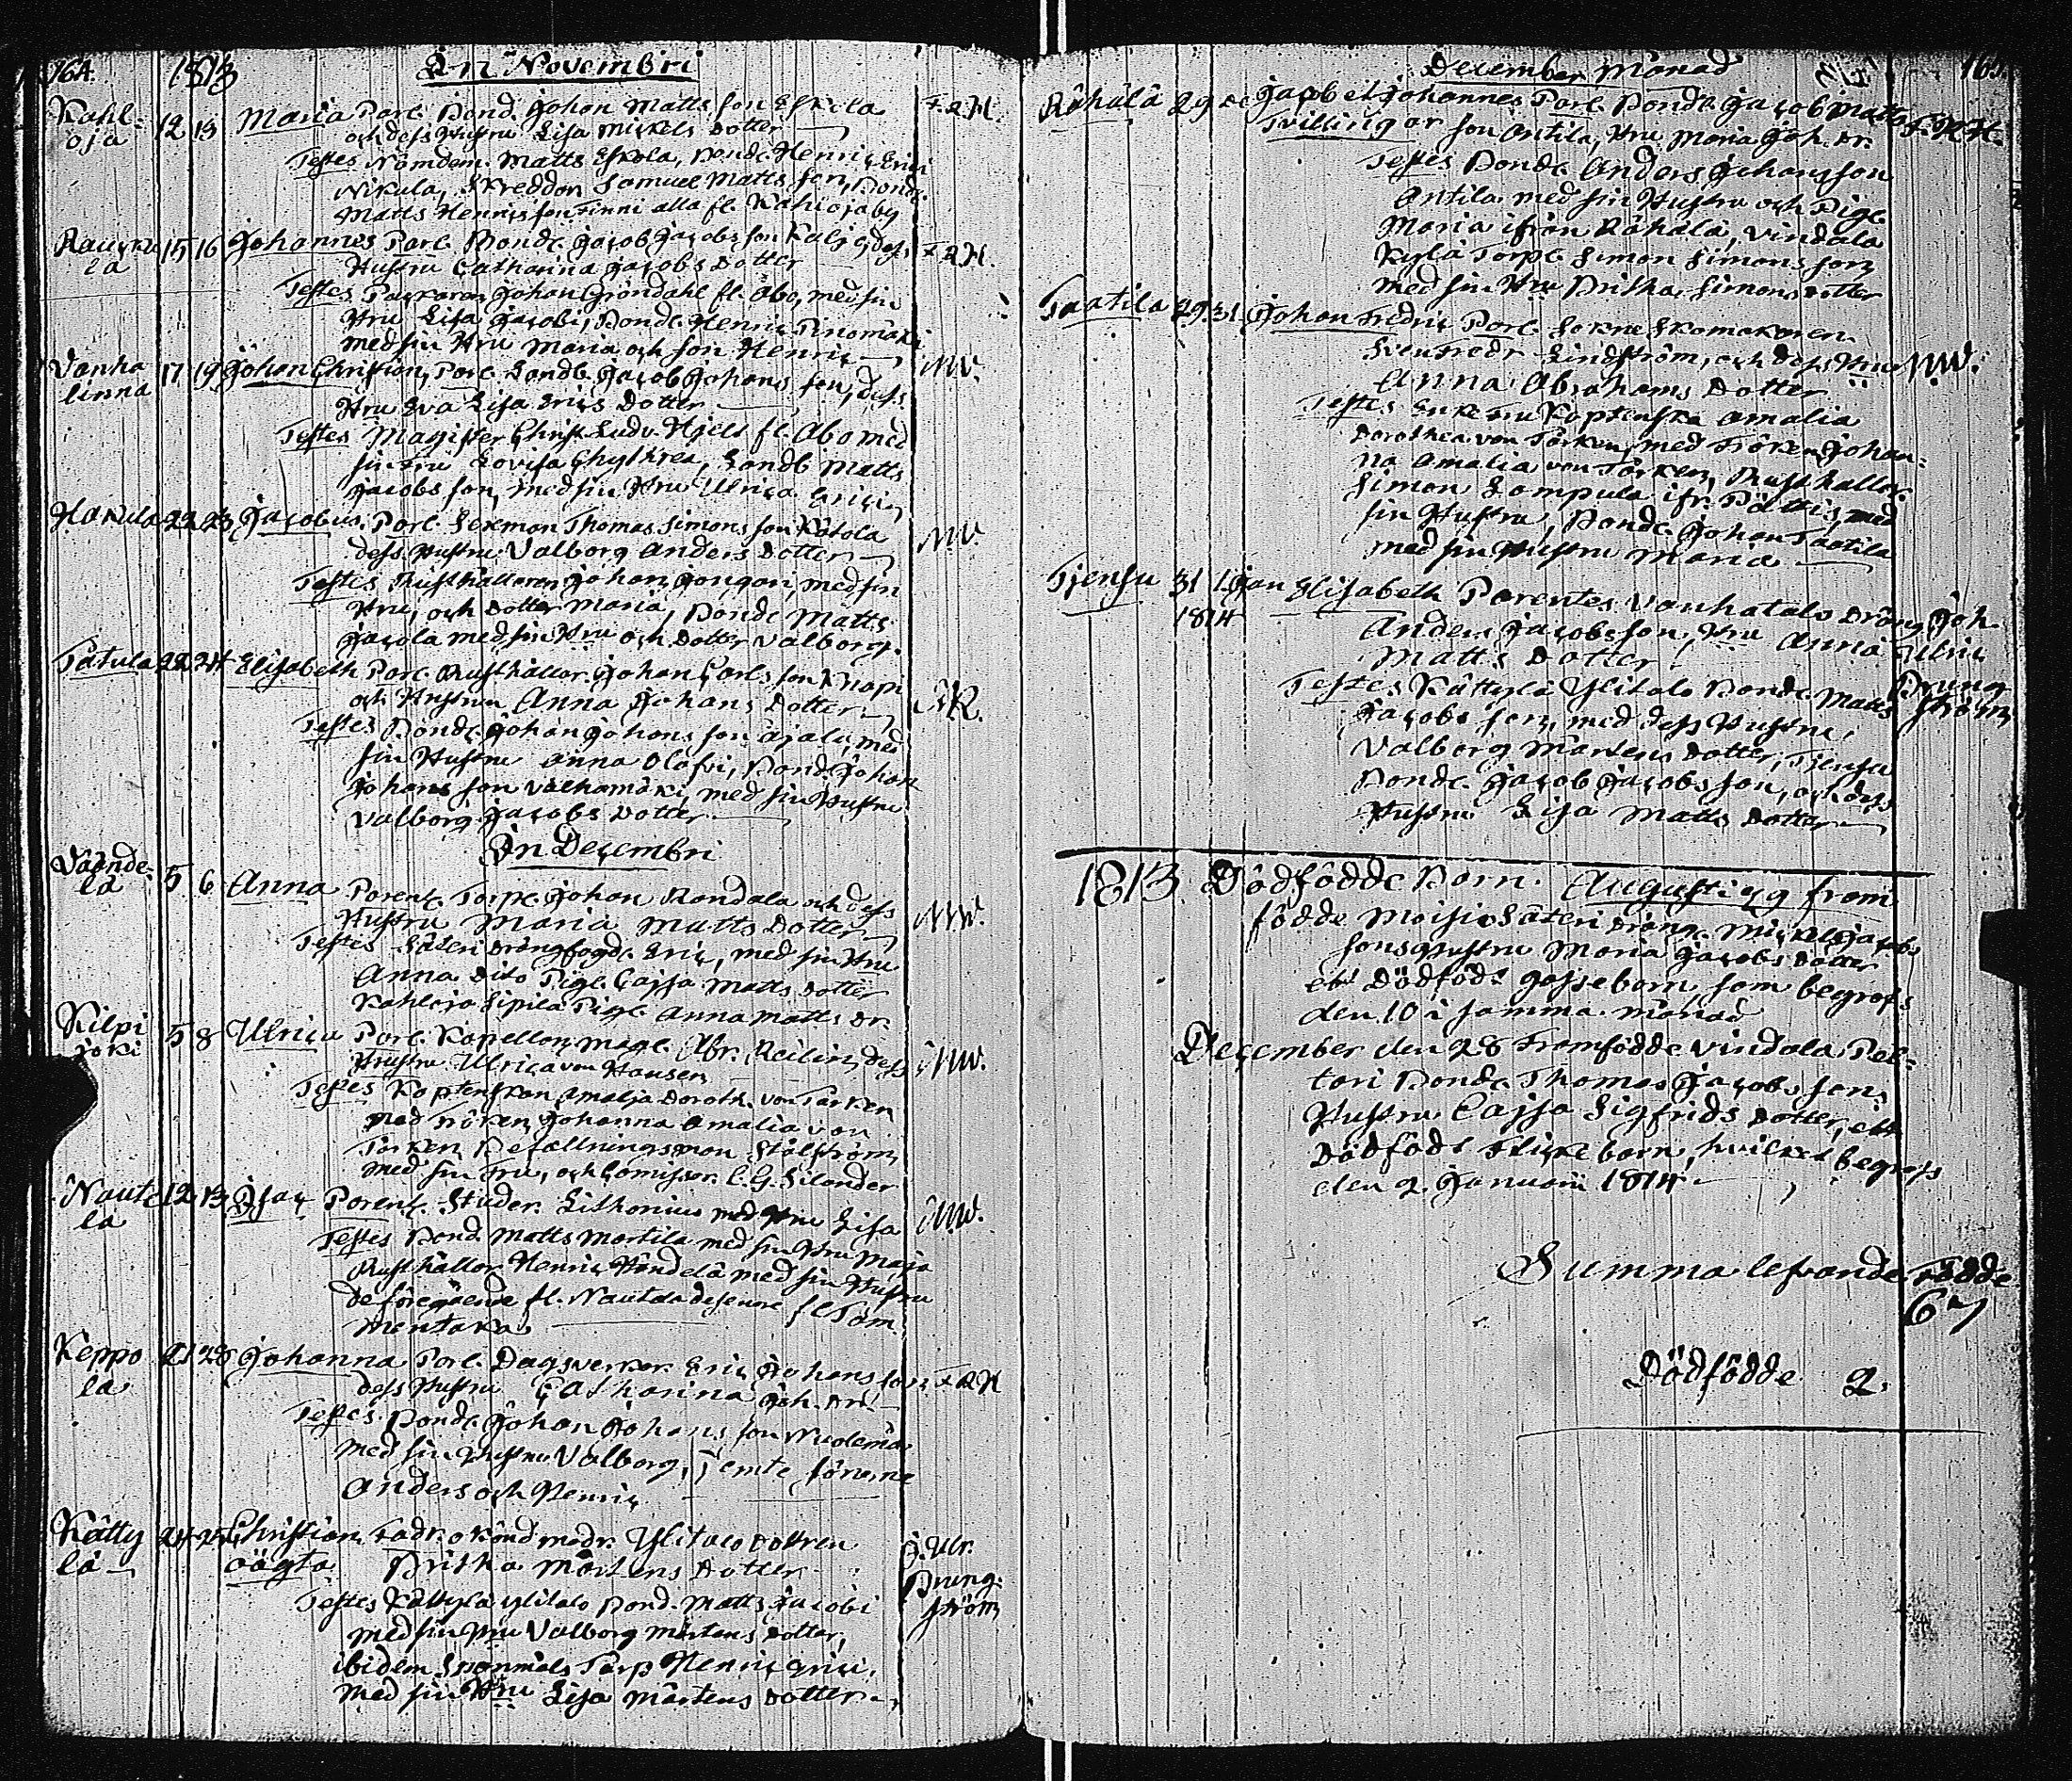 164. 1813 In Novembri
Kahl- 12 13 Maria Par. Bond. Johan Matts son Eskola F.R.H.
oja och dess Hustru Lisa Mickels Dotter
Testes Nämdem. Matts Eskola, Bond. Henric Erici
Nikula, Skreddon Samuel Matts son, Bond.
Matts Henrics son Finni alla fr. Kahlojaby
15 16 Johannes Par. Bond. Jacob Jacobs son dess F.R.H.
la Hustru Catharina Jacobs Dotter
Testes Johan Gröndahl fr. Åbo, med sin
Hru Lisa Jacobi, Bond. Henric Pinomäki
med sin Hru Maria och son Henric
Vanha 17 19 Johan Christian, Par. Landb. Jacob Johans son, dess NW.
linna Hru Eva Lisa Erics Dotter
Testes Magister Christ. Ludv. Hjelt fr. Åbo med
sin Fru Lovisa Chythrea, Landb. Matts
Jacobs son, med sin Hru Ulrica Erici
22 23 Jacobus, Par. Sexman Thomas Simons son NW
dess Hustru Valborg Anders Dotter
Testes Rusthållaren Johan med sin
Hru, och Dotter Maria, Bond. Matts
Jacola med sin Hru och Dotter Valborg.
Tatula 22 24 Elisabeth Par. Rusthållar. Johan Carls son Knapi
och Hustru Anna Johans Dotter
Testes Bond. Johan Johans son Äjälä, med
sin Hustru Anna Olofvi, Bond. Johan
Johans son med sin Hustru
Valborg Jacobs Dotter
In Decembri
5 6 Anna Parent. Torp. Johan Randala och dess NW.
la Hustru Maria Matts Dotter
Testes Säteri Drängfogd. Eric, med sin Hru
Anna, Dito Pig. Cajsa Matts Dotter
Kahloja Sipilä Pig. Anna Matts Dr.
Kilpi 5 8 Ulrica Par. Kapellan Mag. Abr. dess NW.
joki Hustru Ulrica von Hausen
Testes Kaptenskan Amalja Doroth. von Törken
med Fröken Johanna Amalia von
Törken, Befallningsman Stålström
med sin Fru, och Comissar. C. G. Silander
Naute 12 13 Isac Parent. Studer. Lithonius med Hru Lisa NW.
la Testes Bond. Matts Martila med sin Hru Maja
Rusthållar Henric Händelä med sin Hustru
de föregående fr. Nautela
mentaka
Keppo 21 28 Johanna Par. Dagsverkar. Eric Johans son F.R.H
la dess Hustru Catharina Joh. Dr.
Testes Bond. Johan Johans son
med sin Hustru Valborg, jemte sönerne
Anders och Henric
Kätty 24 25 Christian, Fadr. okänd modr. Ylitalo Dottren J. Ulr.
lä oägta Britha Mårtens Dotter Brung-
Testes Kättylä Ylitalo Bond. Matts Jacobi ström
med sin Hru Valborg Mårtens Dotter,
ibidem Torp. Henric Erici
med sin Hru Lisa Mårtens Dotter
December Månad 1813 165.
Rähälä 29 Jacob et Johannes Par. Bond. Jacob Matts F.R.H.
Tvillingar son Antila, Hru Maria Joh. Dr.
Testes Bond. Anders Johansson
Antila med sin Hustru och Pig.
Maria ifrån Rähälä, Vindala
Kylä Torp. Simon Simons son
med sin Hru Britha Simons Dotter
Taatila 29 31 Johan Fredric Par. Sokne Skomakaren
Sven Fredr. Lindström, och dess Hru NW.
Anna Abrahams Dotter
Testes Enke Fru Kaptenska Amalia
Dorothea von Törken med Fröken Johan-
na Amalia von Törken, Rusthållar.
Simon Lampula ifr. Pättis, med
sin Hustru, Bond. Johan Taatila
med sin Hustru Maria
Tjensu 31 1 Jan Elisabeth Parentes Vanhatalo Dräng Joh.
1814 Anders Jacobsson, Hru Anna Ulric
Matts Dotter
Testes Kättylä Ylitalo Bond. Matts Brung
Jacobs son, med dess Hustru, ström
Valborg Mårtens Dotter, Tjensu
Bond. Jacob Jacobs son, och dess
Hustru Lisa Matts Dotter
1813 Dödfödde Barn. Augusti 9 fram
födde Moisio Säteri Dräng. Mickel Jacobs
sons Hustru Maria Jacobs Dotter
ett Dödfödt gossebarn, som begrofs
den 10 i samma månad
December den 28 Framfödde Vindala Pel-
tari Bond. Thomas Jacobs sons
Hustru Cajsa Sigfrids Dotter, ett
Dödfödt Flickebarn, hvilket begrofs
den 2 Januarii 1814
Summa lefvande Födde
67
Dödfödde 2.